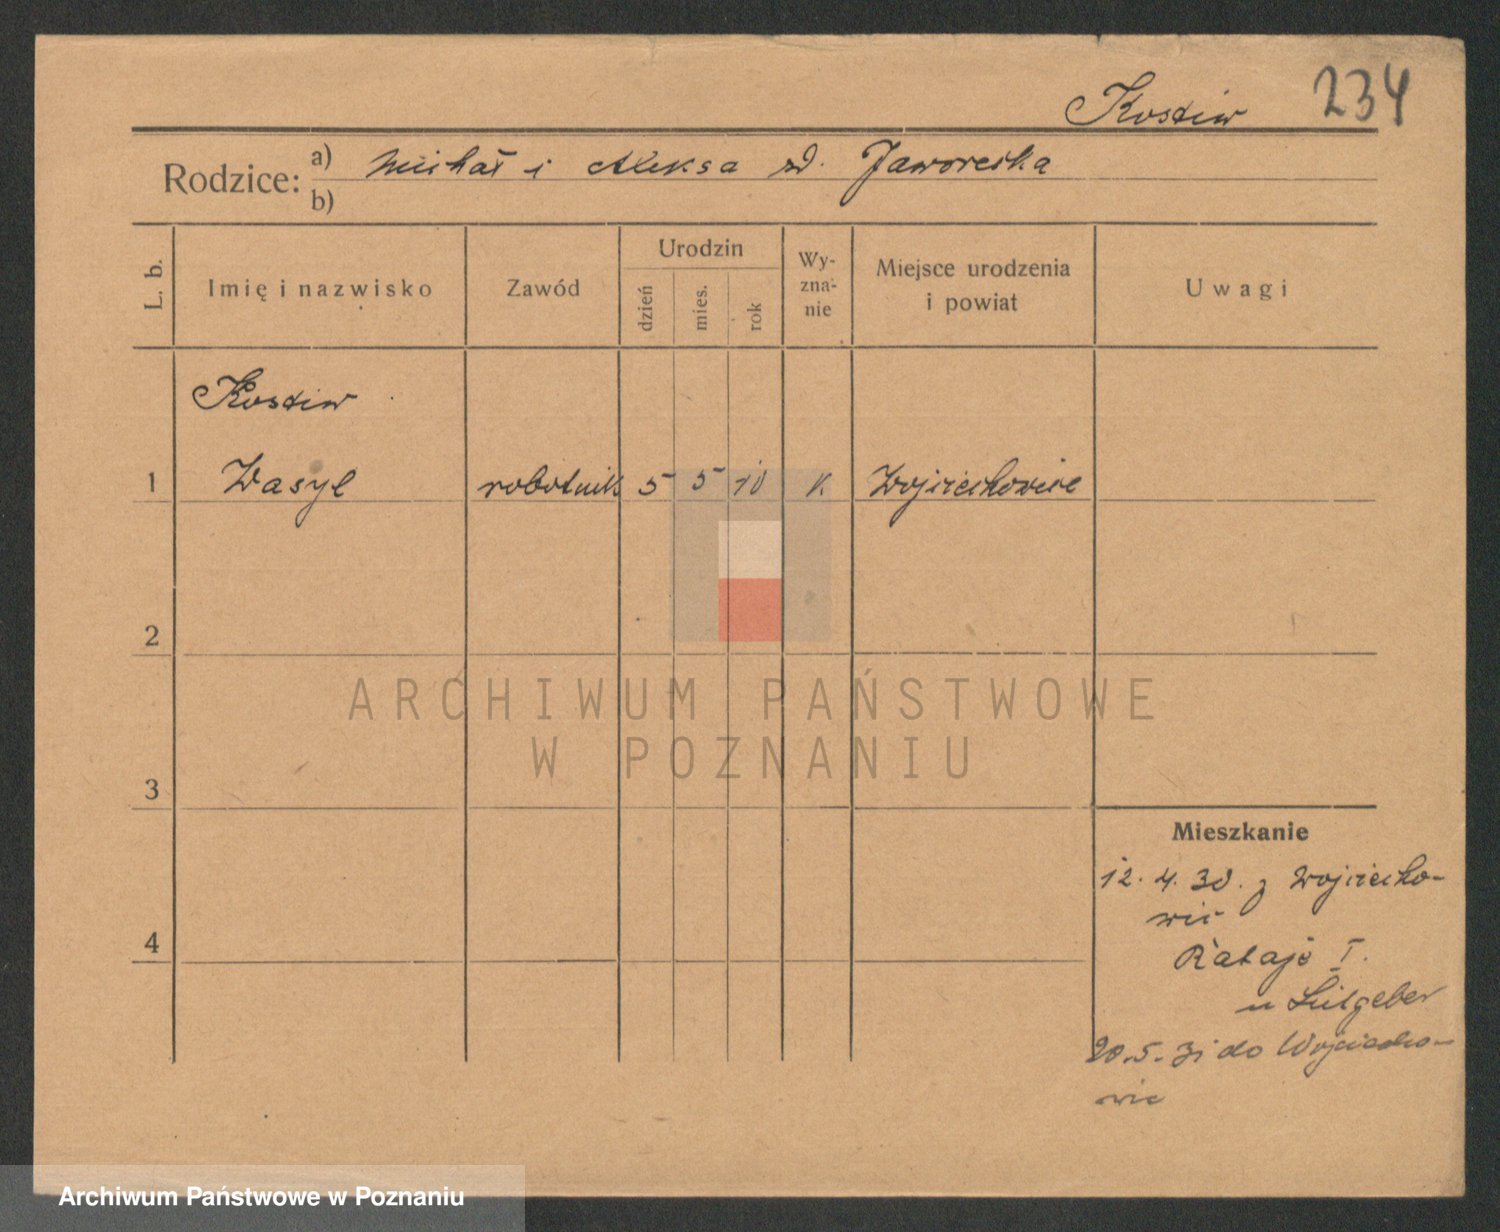 234
Kostiw
Rodzice: a) Michał i Aleksa zd. Jaworecka
b)
L. b. Imię i nazwisko Zawód Urodzin dzień mies. rok Wy-zna-nie Miejsce urodzenia i powiat Uwagi
Kostiw
1 Wasyl robotnik 5 5 10 K Wojciechowice
2
ARCHIWUM PAŃSTWOWE
W POZNANIU
3
Mieszkanie
12. 4. 30. z Wojciecho-
wic
4
Rataje I.
u Leitgeber
20. 5. 31 do Wojciecho-
wic
Archiwum Państwowe w Poznaniu